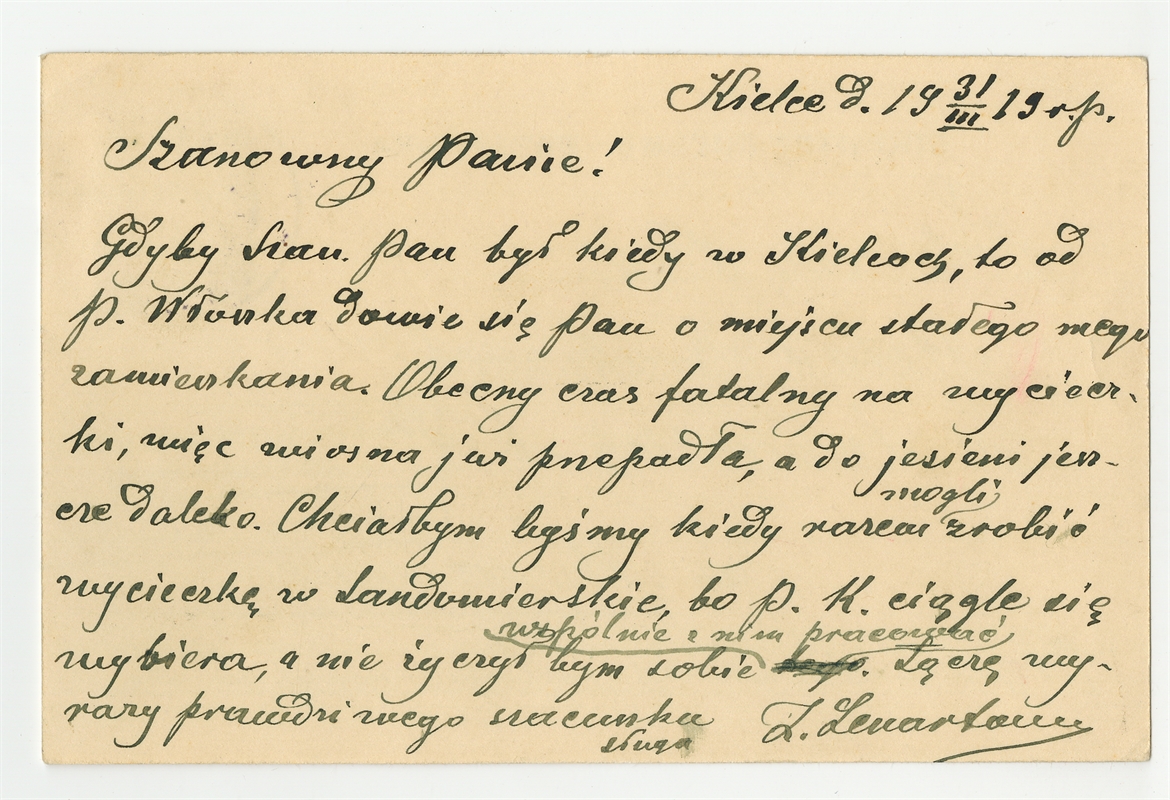 Kielce d. 19 31/III 19 r. p.
Szanowny Panie!
Gdyby Szan. Pan był kiedy w Kielcach, to od
P. Włoszka dowie się Pan o miejscu stałego mego
zamieszkania. Obecny czas fatalny na wyciecz-
ki, więc wiosna już przepadła, a do jesieni jesz-
mogli
cze daleko. Chciałbym byśmy kiedy razem zrobić
wycieczkę w Sandomierskie, bo P. K. ciągle się
wspólnie z nim pracować
wybiera, a nie życzył bym sobie . Łączę wy-
razy prawdziwego szacunku
sługa Z. Lenartowicz